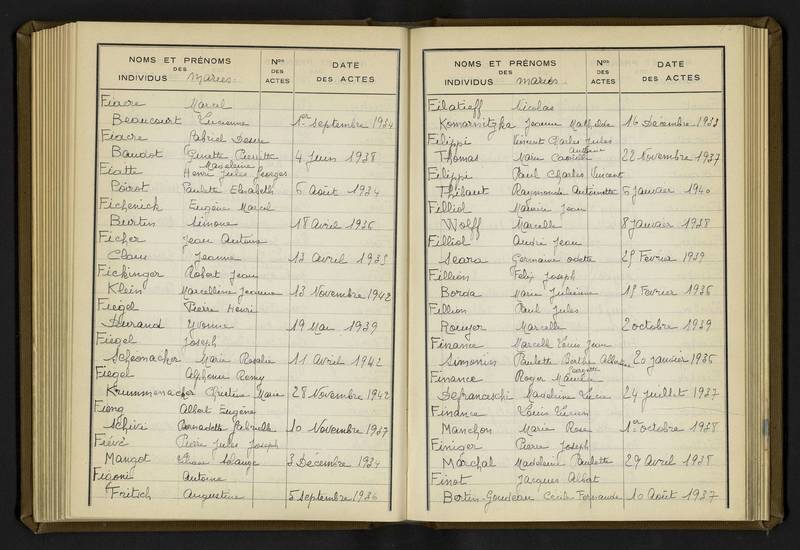 NOMS ET PRÉNOMS DES INDIVIDUS mariés. Nos DES ACTES DATE DES ACTES
Fiacre Marcel
Beaucourt Lucienne 1er septembre 1934
Fiacre Gabriel Désiré
Baudot Ginette Pierrette Madeleine 4 Juin 1938
Fiatte Henri Jules Georges
Poirot Paulette Elisabeth 6 Août 1934
Fichenick Eugène Marcel
Burtin Simone 18 Avril 1936
Ficher Jean Antoine
Claur Jeanne 13 Avril 1935
Fickinger Robert Jean
Klein Marcelline Jeanne 13 Novembre 1942
Fiegel Pierre Henri
Durand Yvonne 19 Mai 1939
Fiegel Joseph
Schéonacher Marie Rosalie 11 Avril 1942
Fiegel Alphonse Remy
Krummenacher Christine Marie 28 Novembre 1942
Fieng Albert Eugène
Schivi Bernadette Gabrielle 10 Novembre 1937
Fiévé Pierre Jules Joseph
Mangot Solange 3 Décembre 1934
Figoni Antoine
Fritsch Augustine 5 septembre 1936
NOMS ET PRÉNOMS DES INDIVIDUS mariés Nos DES ACTES DATE DES ACTES
Filatieff Nicolas
Komarnitzka Jeanne Mathilde 16 Décembre 1933
Filippi Vincent Charles Jules Antoine
Thomas Marie Camille 22 Novembre 1937
Filippi Paul Charles Vincent
Thibaut Raymonde Antoinette 6 Janvier 1940
Filliol Maurice Jean
Wolff Marcelle 8 Janvier 1938
Filliol André Jean
Seara Germaine Odette 25 Février 1939
Fillion Felix Joseph
Borda Marie Julienne 15 Février 1936
Fillion Paul Jules
Rouyer Marcelle 2 octobre 1939
Finance Marcel Louis Jean
Simonin Paulette Berthe 20 Janvier 1936
Finance Roger Maurice Georgette
Defranceschi Madeleine Lucie 24 Juillet 1937
Finance Louis Lucien
Manchon Marie Rose 1er octobre 1938
Finiger Pierre Joseph
Marchal Madeleine Paulette 29 Avril 1938
Finot Jacques Albert
Bertin-Goudeau Cécile Fernande 10 Août 1937